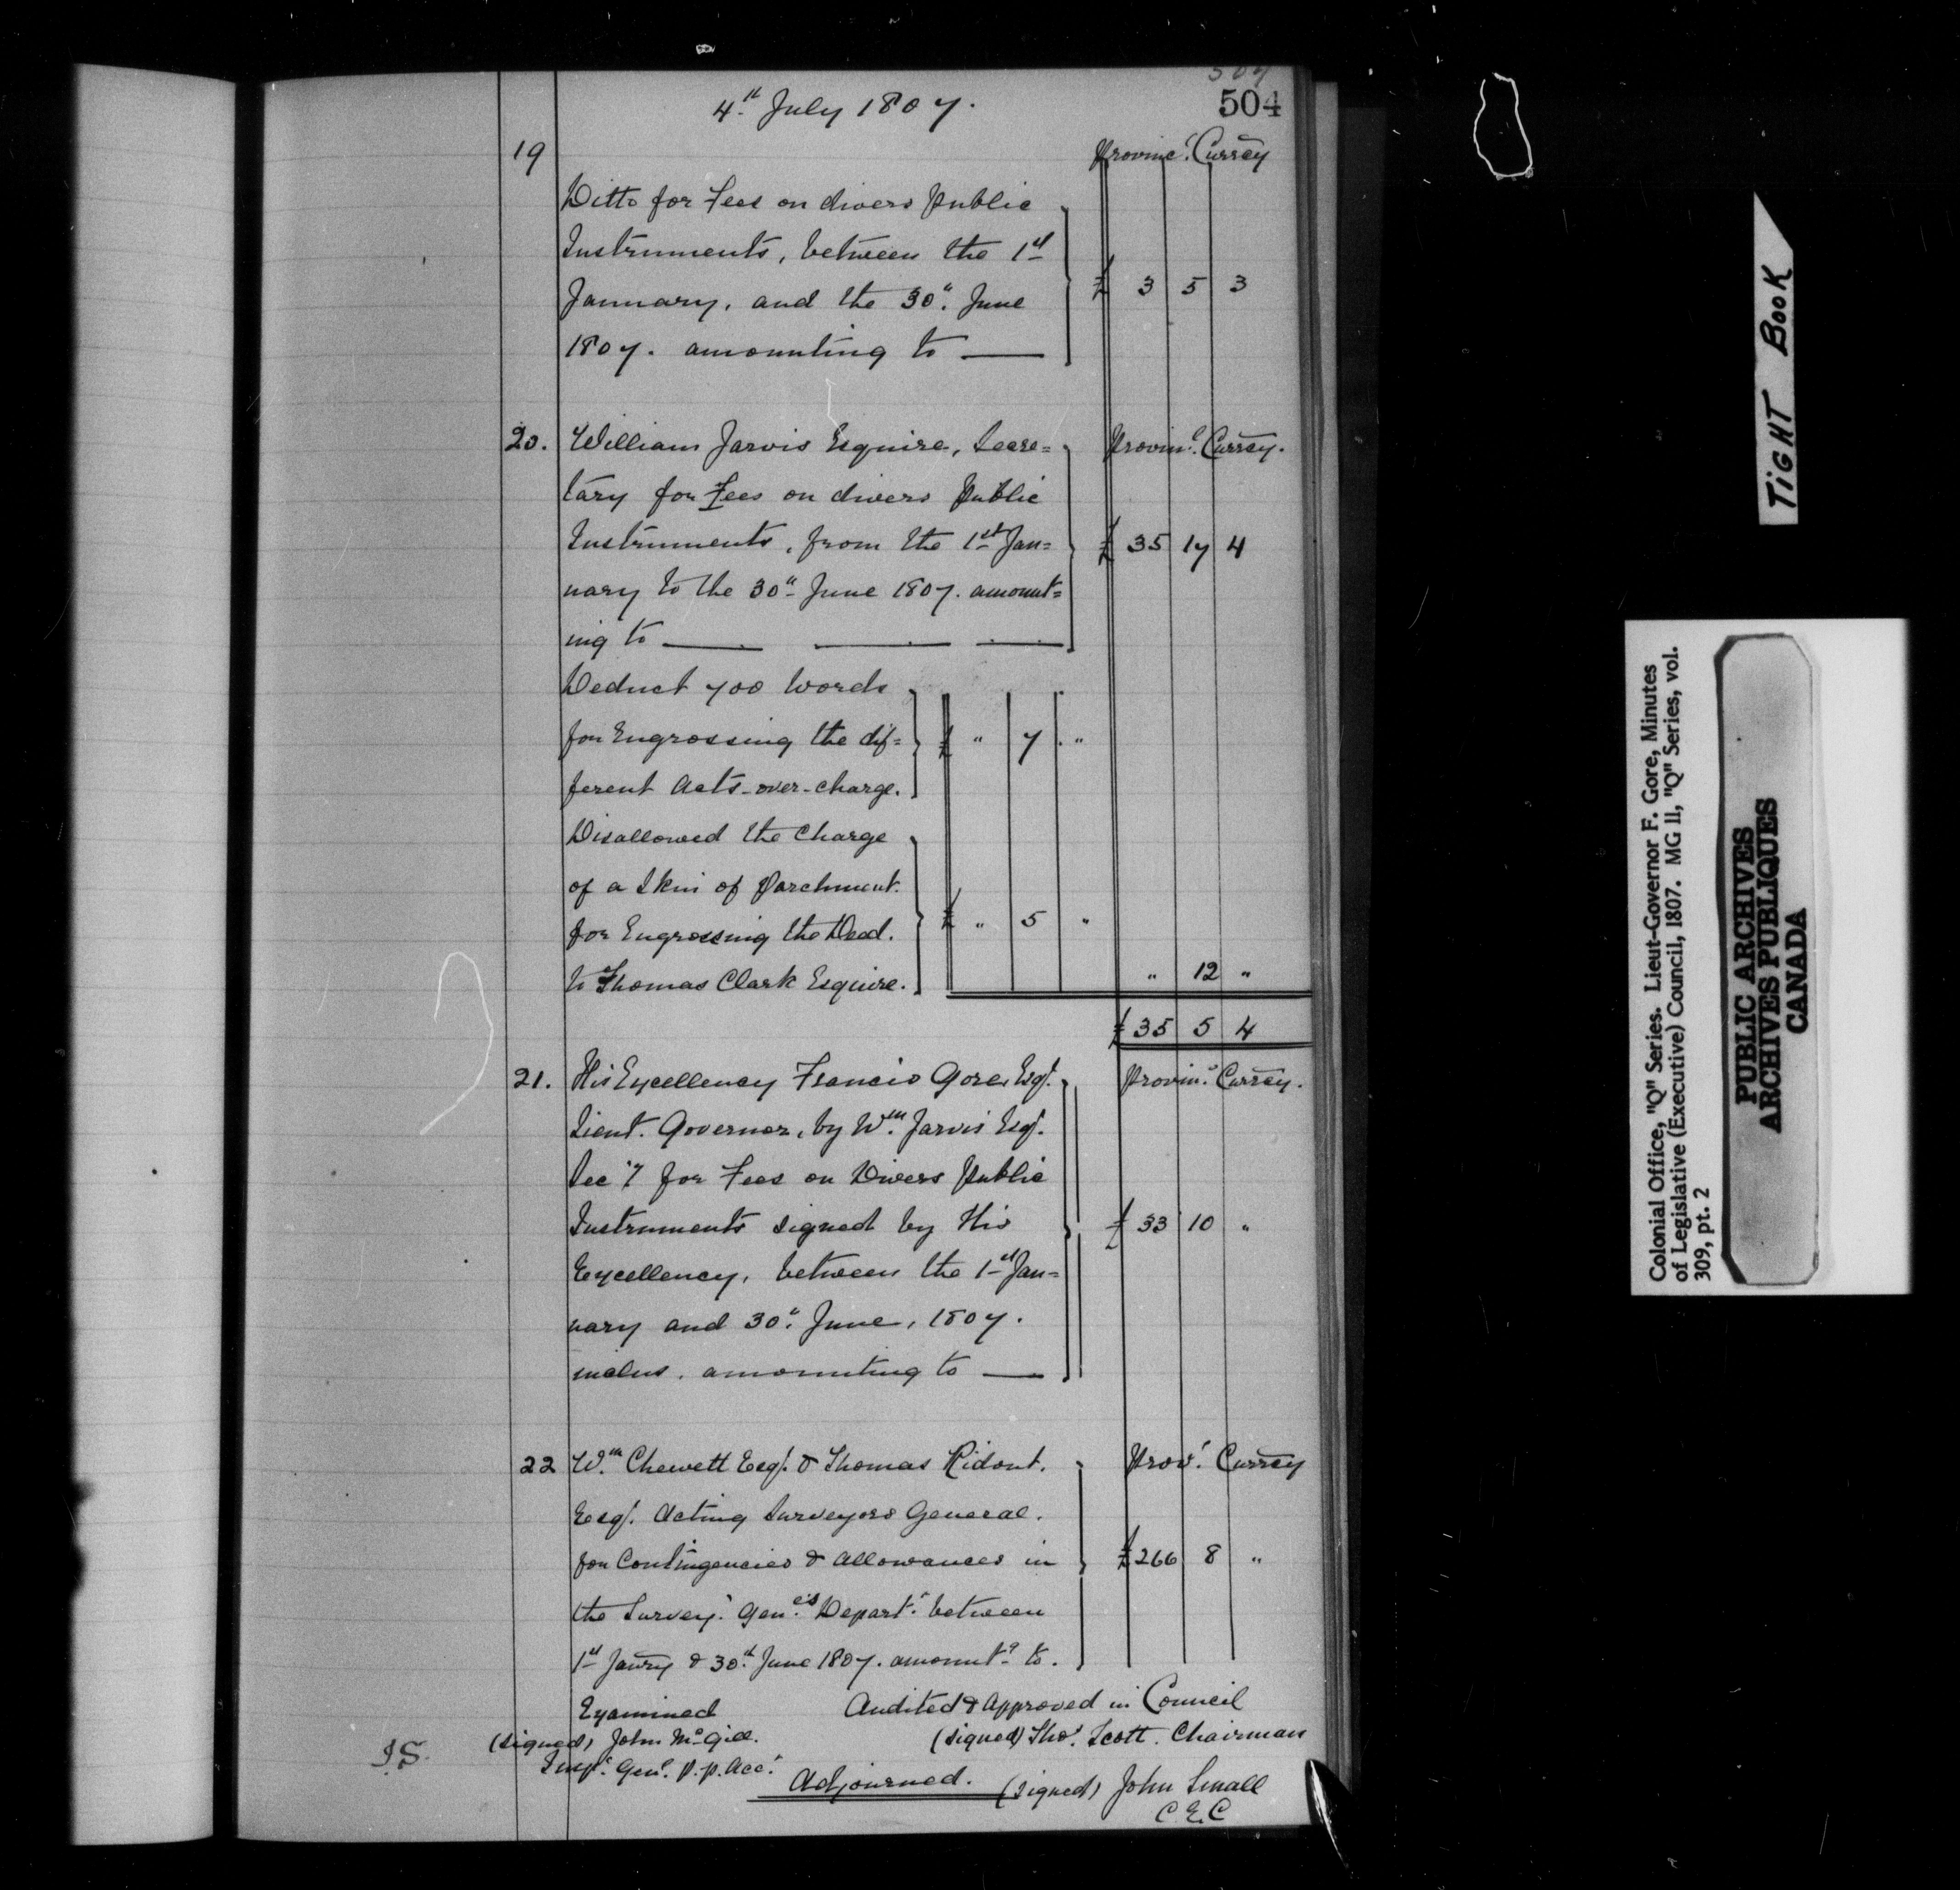 507
4th July 1807.
504
19
Provinc'l Currcy
Ditto for Fees on divers Public
Instruments, between the 1st
January, and the 30th June
1807. amounting to —
£ 3 5 3
20.
William Jarvis Esquire, Secre=
tary for Fees on divers Public
Instruments, from the 1st Jan=
uary to the 30th June 1807. amount=
ing to — — —
Provin'l Currcy.
£ 35 17 4
Deduct 700 words
for Engrossing the dif=
ferent Acts-over-charge.
£ " 7 . "
Disallowed the Charge
of a Skin of Parchment.
for Engrossing the Deed.
to Thomas Clark Esquire.
£ " 5 "
" 12 "
£ 35 5 4
21.
His Excellency Francis Gore, Esq'r.
Lieut. Governor, by Wm. Jarvis Esq'r.
Sec'y for Fees on Divers Public
Instruments signed by His
Excellency, between the 1st Jan=
uary and 30th June, 1807.
inclus. amounting to —
Provin'l Currcy.
£ 33 10 "
22
Wm. Chewett Esq'r. & Thomas Ridout.
Esq'r. Acting Surveyors General.
for Contingencies & Allowances in
the Survey'r Gen'el's Depart't between
1st Janry & 30th June 1807. amount'g to.
Prov'l Currcy
£ 266 8 "
Examined
(signed) John McGill.
Insp'r Gen'l P. P. Acc'ts
Audited & Approved in Council
(signed) Tho's Scott. Chairman
J.S.
Adjourned.
(signed) John Small
C E C
TiGHT BooK
Colonial Office, "Q" Series. Lieut-Governor F. Gore, Minutes
of Legislative (Executive) Council, 1807. MG 11, "Q" Series, vol.
309, pt. 2
PUBLIC ARCHIVES
ARCHIVES PUBLIQUES
CANADA